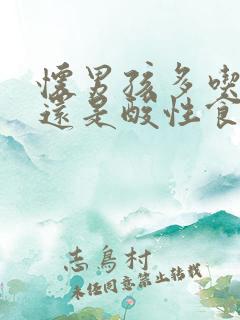 懷男孩多喫
還是酸性食
志鳥村
未經同意禁止轉載